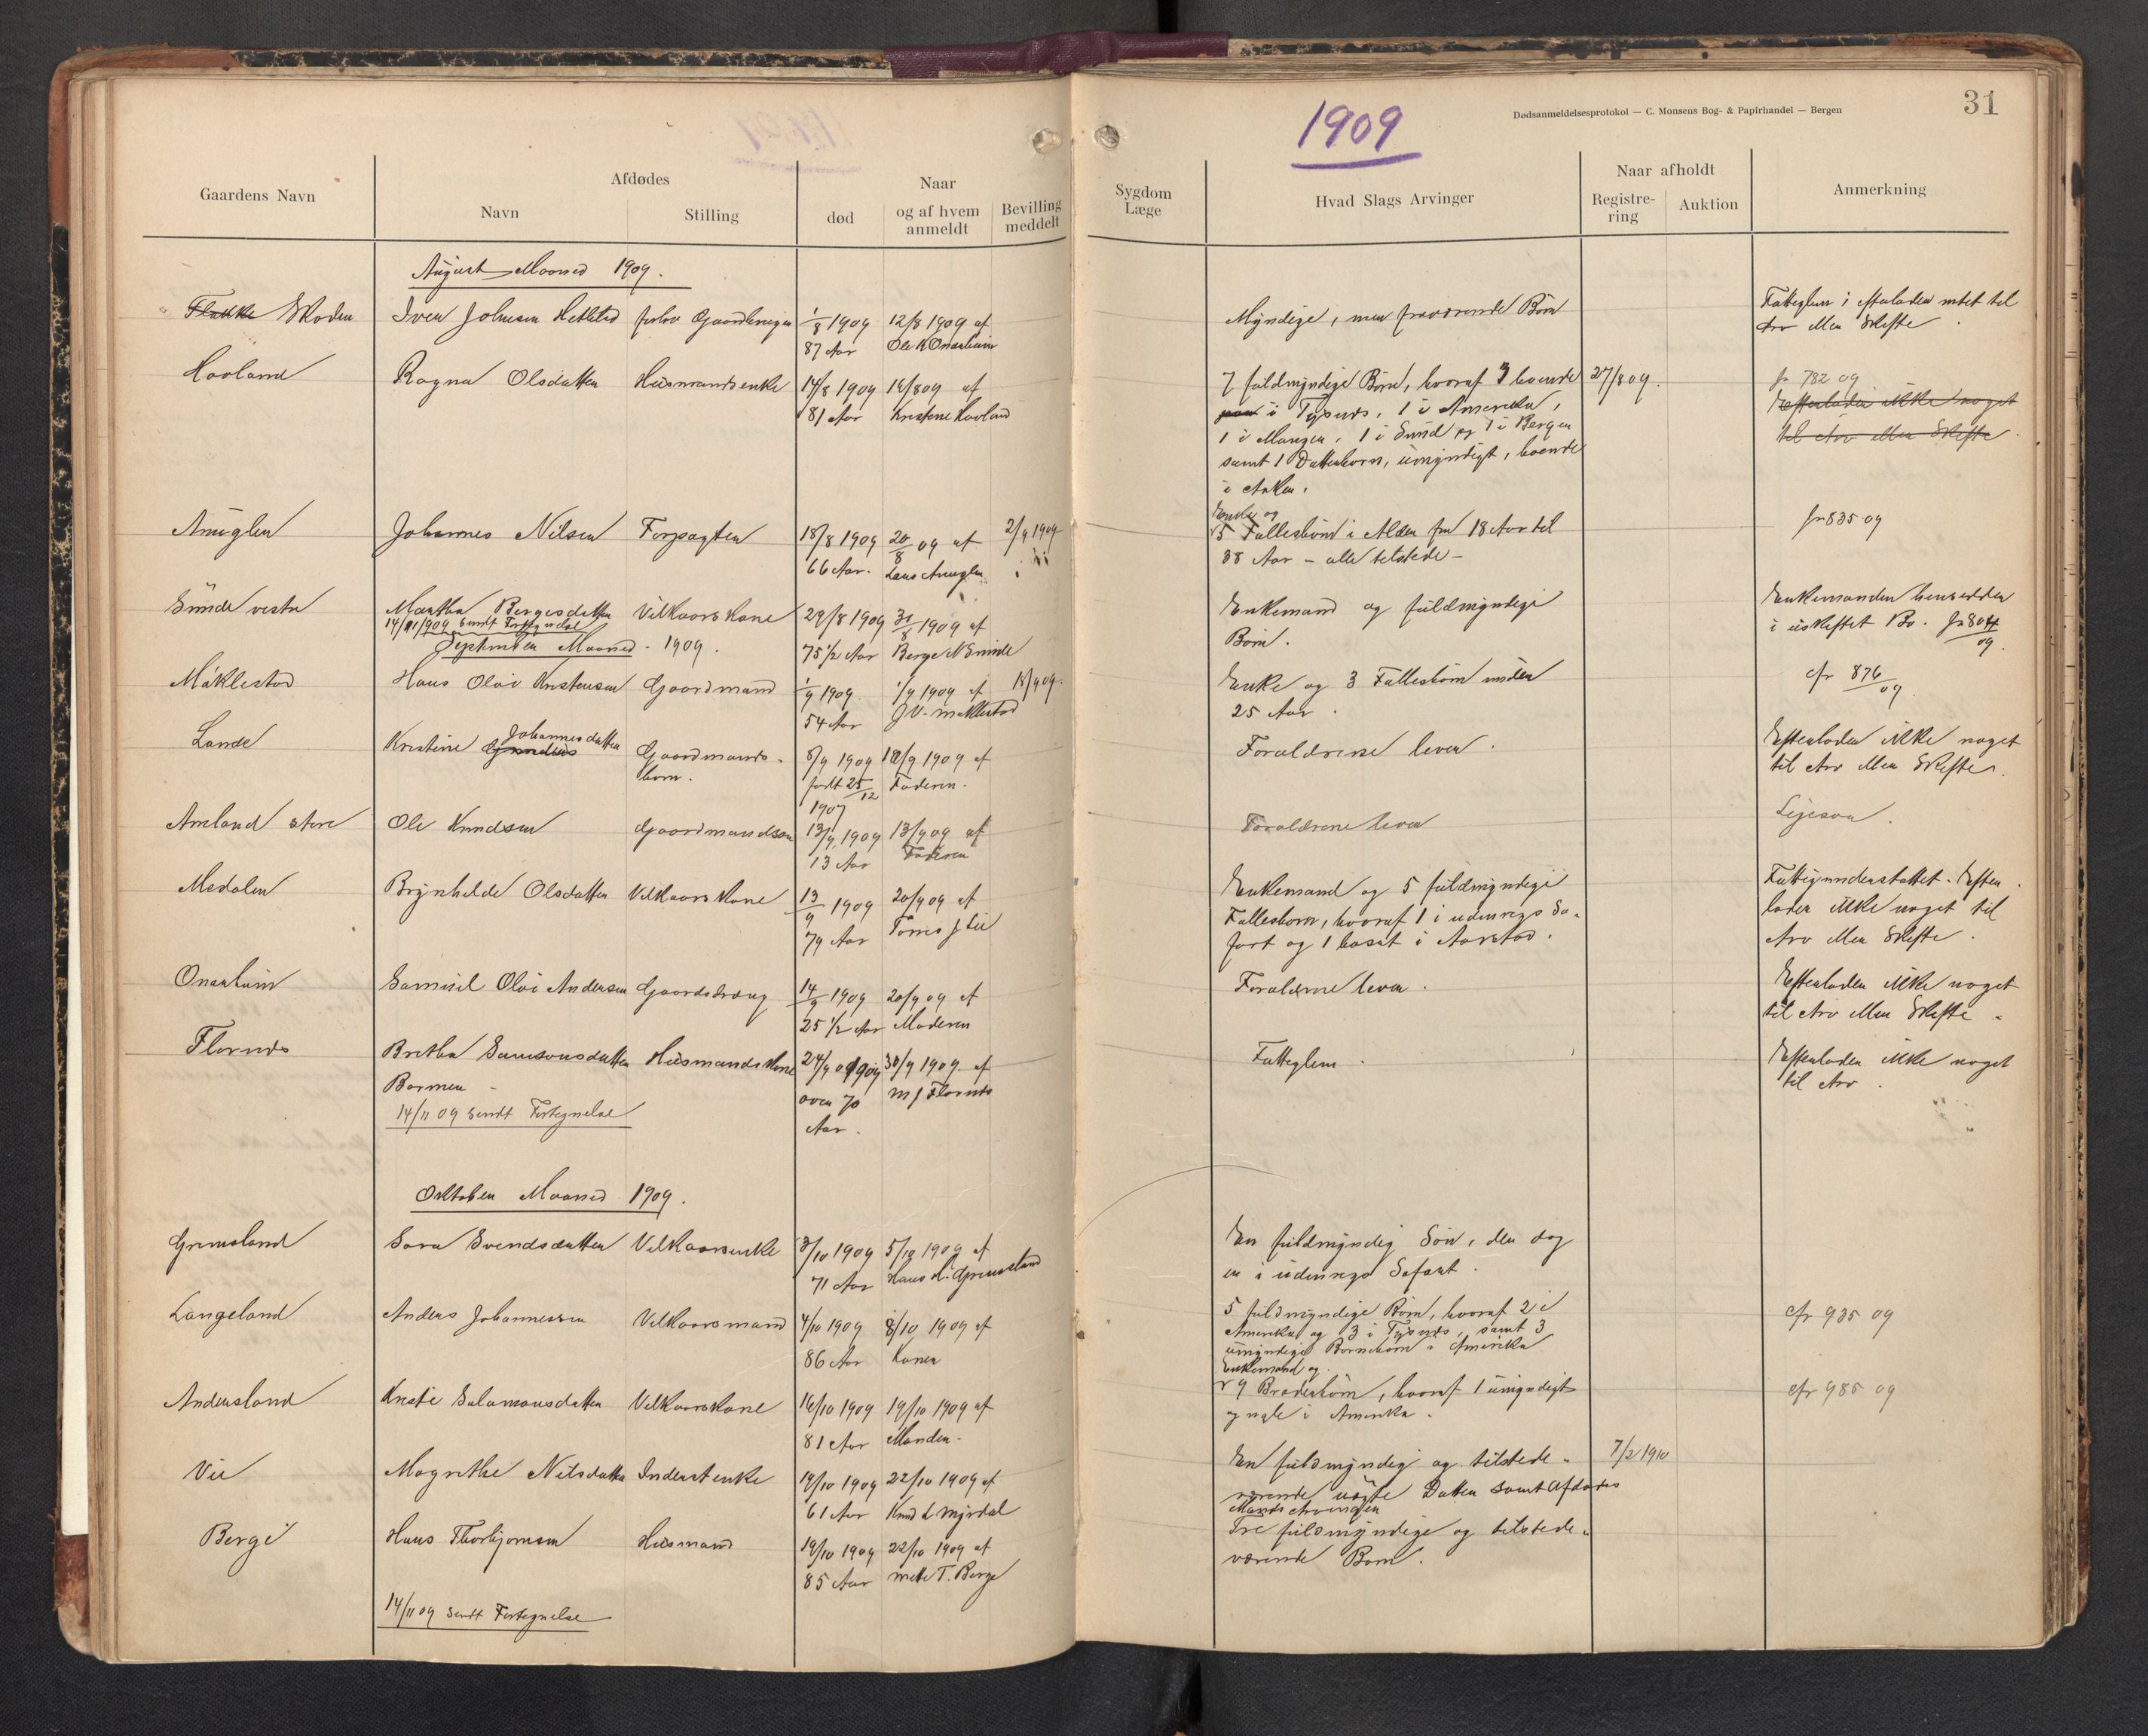 1909
Dødsanmeldelsesprotokol — C. Monsens Bog- & Papirhandel — Bergen
31
Gaardens Navn
Afdødes
Navn
Stilling
død
Naar
og af hvem
anmeldt
Bevilling
meddelt
Sygdom
Læge
Hvad Slags Arvinger
Naar afholdt
Registre-
ring
Auktion
Anmerkning
August Maaned 1909.
Flakke Skoden
Iver Johnsen
1/8 1909
87 Aar
12/8 1909 af
Ole K Onarheim
Myndige, men fraværende Børn
Fatteglem; efterlader intet til
Arv eller Skifte
Hovland
Ragna Olsdatter
Husmandsenke
14/8 1909
81 Aar
af
Kristine Hovland
7 fuldmyndige Børn, hvoraf 3 boende
i Tysnes, 1 i Amerika,
1 i Manger, 1 i Sund og 1 i Bergen
samt 1 Datterbarn, umyndigt, boende
i Asker.
27/8 09.
jr 782 09
Efterlader ikke noget
til Arv eller Skifte.
Anuglen
Johannes Nilsen
Forpagter
18/8 1909
66 Aar.
20/8 09 af
Lars Anuglen
2/9 1909
Enke og
5 Fællesbørn i Alder fra 18 Aar til
38 Aar - alle tilstede -
jr 835 09
Sunde vestre
Martha Bergesdatter
14/11 1909 sendt Fortegnelse
Vilkaarskone
29/8 1909
75 1/2 Aar
30/8 1909 af
Berge N Sunde
Enkemand og fuldmyndige
Børn.
Enkemanden hensidder
i uskiftet Bo. jr 804/09.
September Maaned 1909.
Møklestad
Hans Olai Kristensen
Gaardmand
1/9 1909.
54 Aar
1/9 1909 af
J V. Møklestad
18/9 09.
Enke og 3 Fællesbørn under
25 Aar.
cfr 876/09
Lande
Kristine Johannesdatter
Gaardmands-
barn.
8/9 1909
født 25/12
1907
18/9 1909 af
Faderen.
Forældrene lever.
Efterlader ikke noget
til Arv eller Skifte.
Amland store
Ole Knudsen
Gaardmandssøn
13/9 1909
13 Aar
13/9 09 af
Faderen
Forældrene lever
Ligesaa.
Medalen
Brynhilde Olsdatter
Vilkaarskone
13/9 1909
79 Aar
20/9 09 af
Tørres J Lie
Enkemand og 5 fuldmyndige
Fællesbørn, hvoraf 1 i udenrigs Sø-
fart og 1 bosat i Aarstad.
Fattigunderstøttet. Efter-
lader ikke noget til
Arv eller Skifte.
Onarheim
Samuel Olai Andersen
Gaardsdreng
14/9 1909
25 1/2 Aar
20/9 09 af
Moderen
Forældrene lever.
Efterlader ikke noget
til Arv eller Skifte.
Flornes
Bretha Samsonsdatter
Barmen
14/11 09 sendt Fortegnelse
Husmandskone
24/9 1909
over 70
Aar.
30/9 1909 af
M J Flornes
Fatteglem.
Efterlader ikke noget
til Arv.
Oktober Maaned 1909.
Grimsland
Sara Svendsdatter
Vilkaarsenke
3/10 1909
71 Aar
5/10 1909 af
Hans H. Grimsland
En fuldmyndig Søn, der dog
er i udenrigs Søfart.
Langeland
Anders Johannessen
Vilkaarsmand
4/10 1909
86 Aar
8/10 1909 af
Konen
5 fuldmyndige Børn, hvoraf 2 i
Amerika og 3 i Tysnes, samt 3
umyndige Børnebørn i Amerika
cfr 935 09
Andersland
Kristi Salamonsdatter
Vilkaarskone
16/10 1909
81 Aar
19/10 1909 af
Manden.
Enkemand og
9 Broderbørn, hvoraf 1 umyndigt
og nogle i Amerika.
cfr 985 09
Vie
Magrethe Nilsdatter
Inderstenke
19/10 1909
61 Aar
22/10 1909 af
Knud L Myrdal
En fuldmyndig og tilstede-
værende uægte Datter samt Afdødes
Mands Arvinger
7/2 1910
Berge
Hans Thorbjørnsen
Husmand
19/10 1909
85 Aar
22/10 1909 af
Mette T. Berge
Tre fuldmyndige og tilstede-
værende Børn.
14/11 09 sendt Fortegnelse